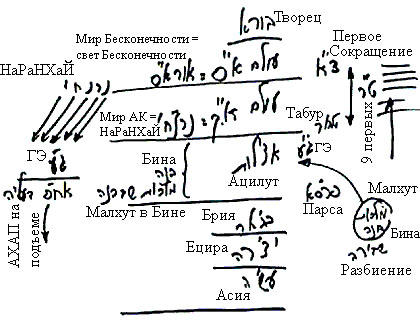 Творец
בורא
Мир Бесконечности =
свет Бесконечности
Первое
Сокращение
НаРаНХаЙ
עולם א"ס = אור א"ס
צ"א
ט"ר
9 первых
Мир АК =
НаРаНХаЙ
עולם א"ק = נרנח"י
Табур
טבור
ГЭ
ГЭ
Бина
בינה
אצילות
Ацилут
Малхут в Бине
АХАП на
подъеме
Парса
פרסא
Малхут
מלכות
בינה
Бина
שבירה
Разбиение
Брия
בריאה
Ецира
יצירה
Асия
עשיה